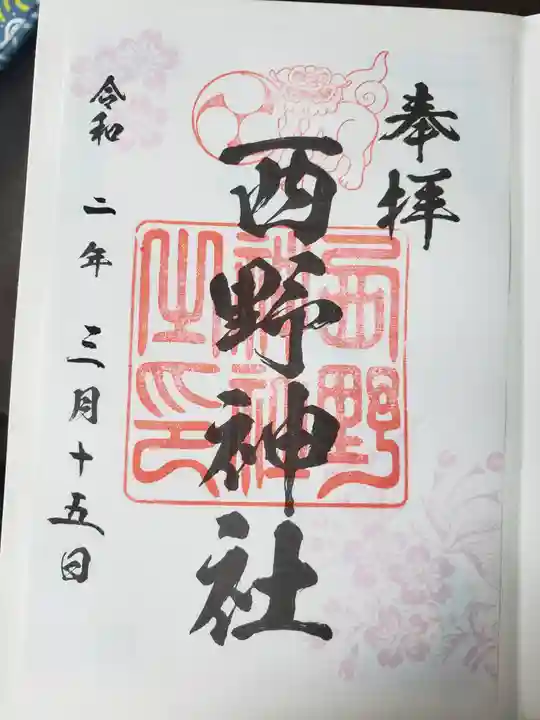 奉拝
西野神社
西野
神社
之印
令和 二年 三月十五日